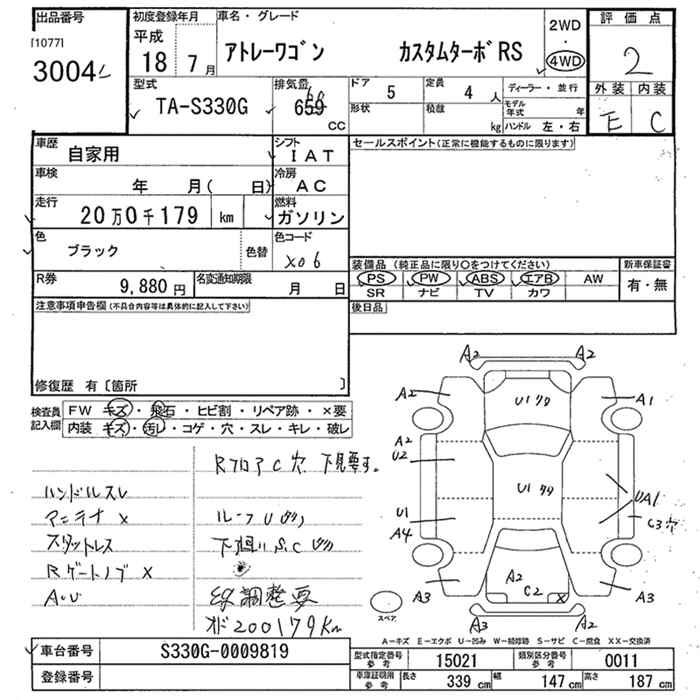 出品番号
[1077]
3004
初度登録年月
平成
18 7月
車名・グレード
アトレーワゴン カスタムターボRS
2WD
・
4WD
評価点
2
外装 内装
E C
型式
TA-S330G
排気量
659
CC
ドア 5
定員 4人
形状
積載 kg
ディーラー・並行
モデル年式 年
ハンドル 左・右
車歴
自家用
シフト
IAT
車検
年 月( 日)
冷房
AC
走行
20万0千179 km
燃料
ガソリン
色
ブラック
色替
色コード
X06
R券
9,880円
名変通知期限
月 日
セールスポイント(正常に機能するものに限ります)
装備品 (純正品に限り○をつけてください)
PS PW ABS エアB AW
SR ナビ TV カワ
新車保証書
有・無
後日品
注意事項申告欄(不具合内容等は具体的に記入して下さい)
修復歴 有〔箇所 〕
検査員記入欄
FW キズ・飛石・ヒビ割・リペア跡・×要
内装 キズ・汚れ・コゲ・穴・スレ・キレ・破レ
RフロアC穴 下見要す。
ハンドルスレ
アンテナ X
スタットレス
Rゲートノブ X
A・U
ルーフU
下廻りS.C
調整要
オド200179Km
A2 A2
A2 U1 A1
A2
U2
U1
U1
A4
UA1
C3穴
A2
C2 X
A3 A3
A2 A2
スペア
A－キズ E－エクボ U－凹み W－補修跡 S－サビ C－腐食 XX－交換済
車台番号
S330G-0009819
登録番号
型式指定番号 参考 15021
類別区分番号 参考 0011
車庫証明用 参考 長さ 339cm 幅 147cm 高さ 187cm